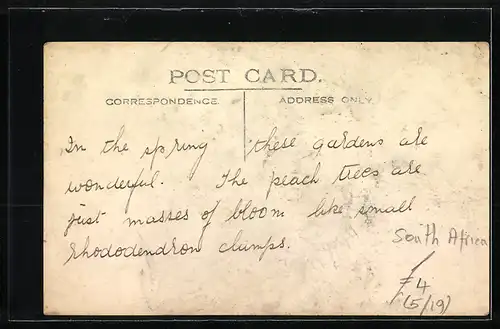 POST CARD.
CORRESPONDENCE. ADDRESS ONLY.
In the spring these gardens are
wonderful. The peach trees are
just masses of bloom like small
rhododendron clumps.
South Africa
£4
(5/19)